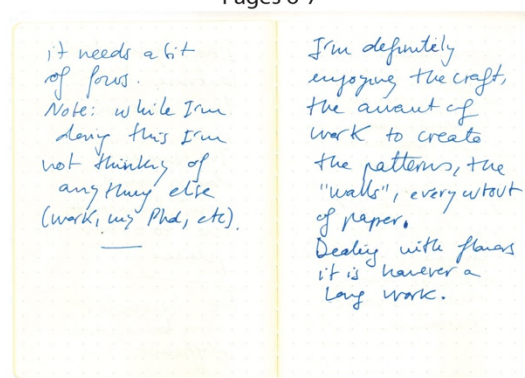 Pages 6-7
it needs a bit
of focus.
Note: while I'm
doing this I'm
not thinking of
anything else
(work, my Phd, etc).
I'm definitely
enjoying the craft,
the amount of
work to create
the patterns, the
"walls", every cutout
of paper.
Dealing with flowers
it is however a
long work.